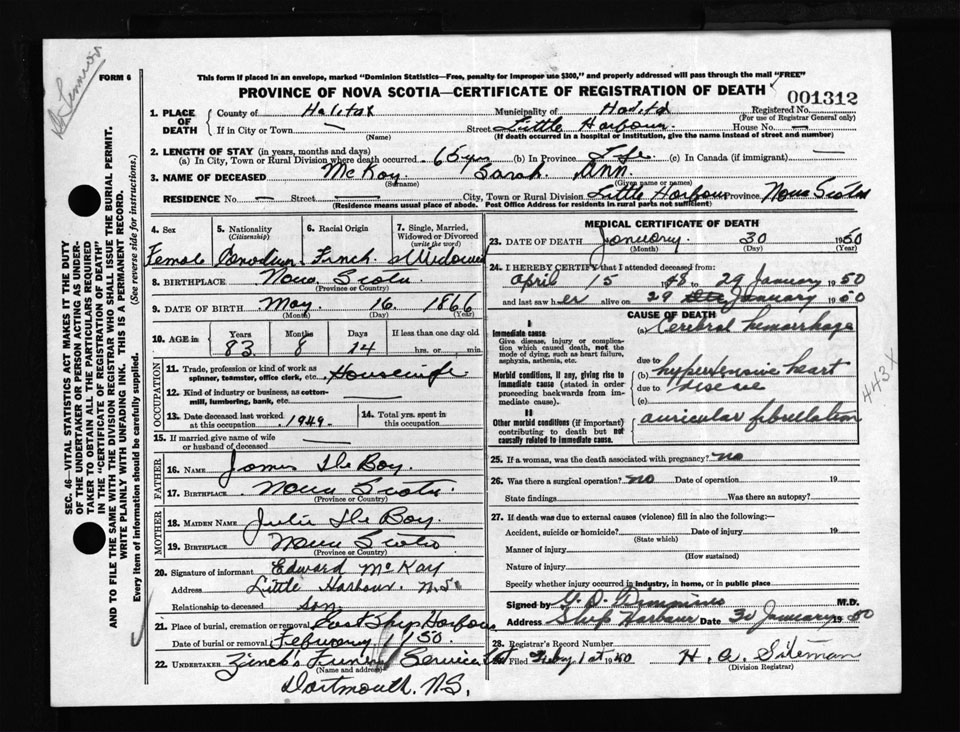 FORM 6
This form if placed in an envelope, marked "Dominion Statistics—Free, penalty for improper use $300," and properly addressed will pass through the mail "FREE"
PROVINCE OF NOVA SCOTIA—CERTIFICATE OF REGISTRATION OF DEATH
001312
1. PLACE OF DEATH County of Halifax Municipality of Halifax Registered No.
(For use of Registrar General only)
If in City or Town — (Name) Street Little Harbour House No. —
(If death occurred in a hospital or institution, give the name instead of street and number)
2. LENGTH OF STAY (in years, months and days)
(a) In City, Town or Rural Division where death occurred 65 yrs (b) In Province Life (c) In Canada (if immigrant) —
3. NAME OF DECEASED McKay Sarah Ann
(Surname) (Given name or names)
RESIDENCE No — Street — City, Town or Rural Division Little Harbour Province Nova Scotia
(Residence means usual place of abode. Post Office Address for residents in rural parts not sufficient)
4. Sex 5. Nationality (Citizenship) 6. Racial Origin 7. Single, Married, Widowed or Divorced (write the word)
Female Canadian French Widowed
8. BIRTHPLACE Nova Scotia
(Province or Country)
9. DATE OF BIRTH May 16 1866
(Month) (Day) (Year)
10. AGE in Years Months Days If less than one day old
83 8 14 hrs. or min.
OCCUPATION
11. Trade, profession or kind of work as spinner, teamster, office clerk, etc. Housewife
12. Kind of industry or business, as cotton-mill, lumbering, bank, etc. —
13. Date deceased last worked at this occupation 1949 14. Total yrs. spent in this occupation
15. If married give name of wife or husband of deceased —
FATHER
16. NAME James DeBoy
17. BIRTHPLACE Nova Scotia
(Province or Country)
MOTHER
18. MAIDEN NAME Julie DeBoy
19. BIRTHPLACE Nova Scotia
(Province or Country)
20. Signature of informant Edward McKay
Address Little Harbour N.S.
Relationship to deceased son
21. Place of burial, cremation or removal East Ship Harbour
Date of burial or removal February 1/50
22. UNDERTAKER Zinck's Funeral Service
(Name and address)
Dartmouth, N.S.
MEDICAL CERTIFICATE OF DEATH
23. DATE OF DEATH January 30 1950
(Month) (Day)
24. I HEREBY CERTIFY that I attended deceased from:
April 15 1948 29 January 1950
and last saw her alive on 29 January 1950
CAUSE OF DEATH
I
Immediate cause (a) Cerebral hemorrhage
Give disease, injury or complication which caused death, not the mode of dying, such as heart failure, asphyxia, asthenia, etc.
due to
Morbid conditions, if any, giving rise to immediate cause (stated in order proceeding backwards from immediate cause).
(b) hypertensive heart
due to disease
(c)
II
Other morbid conditions (if important) contributing to death but not causally related to immediate cause.
auricular fibrillation
443X
25. If a woman, was the death associated with pregnancy? no
26. Was there a surgical operation? no Date of operation 19
State findings Was there an autopsy?
27. If death was due to external causes (violence) fill in also the following:—
Accident, suicide or homicide? Date of injury 19
(State which)
Manner of injury
(How sustained)
Nature of injury
Specify whether injury occurred in industry, in home, or in public place
Signed by M.D.
Address Ship Harbour Date 30 January 1950
28. Registrar's Record Number
Filed Feby 1st 1950 H. A. Siteman
(Division Registrar)
SEC. 46—VITAL STATISTICS ACT MAKES IT THE DUTY
OF THE UNDERTAKER OR PERSON ACTING AS UNDERTAKER TO OBTAIN ALL THE PARTICULARS REQUIRED
IN THE "CERTIFICATE OF REGISTRATION OF DEATH"
AND TO FILE THE SAME WITH THE DIVISION REGISTRAR WHO SHALL ISSUE THE BURIAL PERMIT.
WRITE PLAINLY WITH UNFADING INK. THIS IS A PERMANENT RECORD.
Every item of information should be carefully supplied. (See reverse side for instructions.)